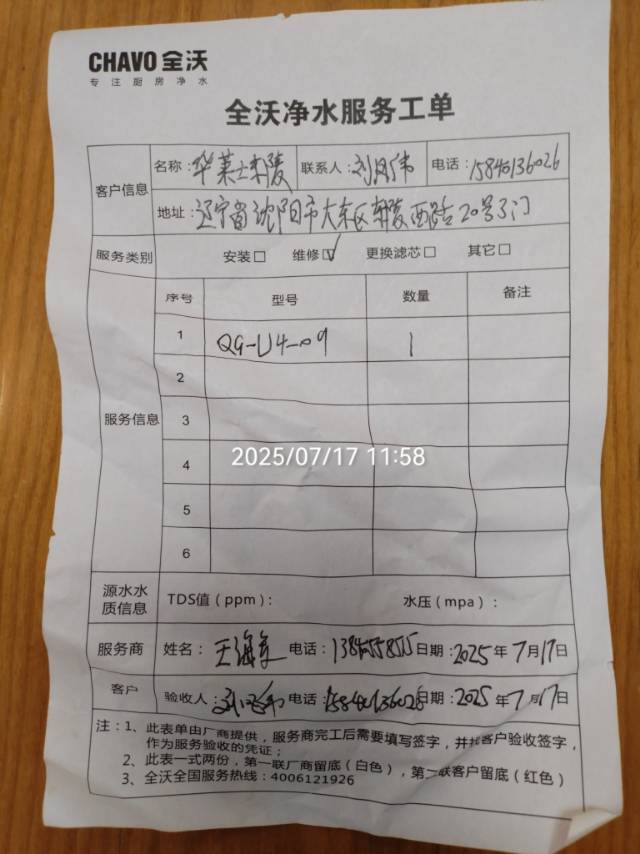 CHAVO 全沃
专注厨房净水
全沃净水服务工单
客户信息
名称：华莱士东陵 联系人：刘凤伟 电话：15840136026
地址：辽宁省沈阳市大东区东陵西路20号3门
服务类别 安装□ 维修☑ 更换滤芯□ 其它□
服务信息
序号 型号 数量 备注
1 QG-U4-09 1
2
3
4
5
6
2025/07/17 11:58
源水水质信息 TDS值（ppm）： 水压（mpa）：
服务商 姓名：王海 电话： 日期：2025年7月17日
客户 验收人：刘 电话：15840136026 日期：2025年7月17日
注：1、此表单由厂商提供，服务商完工后需要填写签字，并托客户验收签字，
作为服务验收的凭证；
2、此表一式两份，第一联厂商留底（白色），第二联客户留底（红色）
3、全沃全国服务热线：4006121926